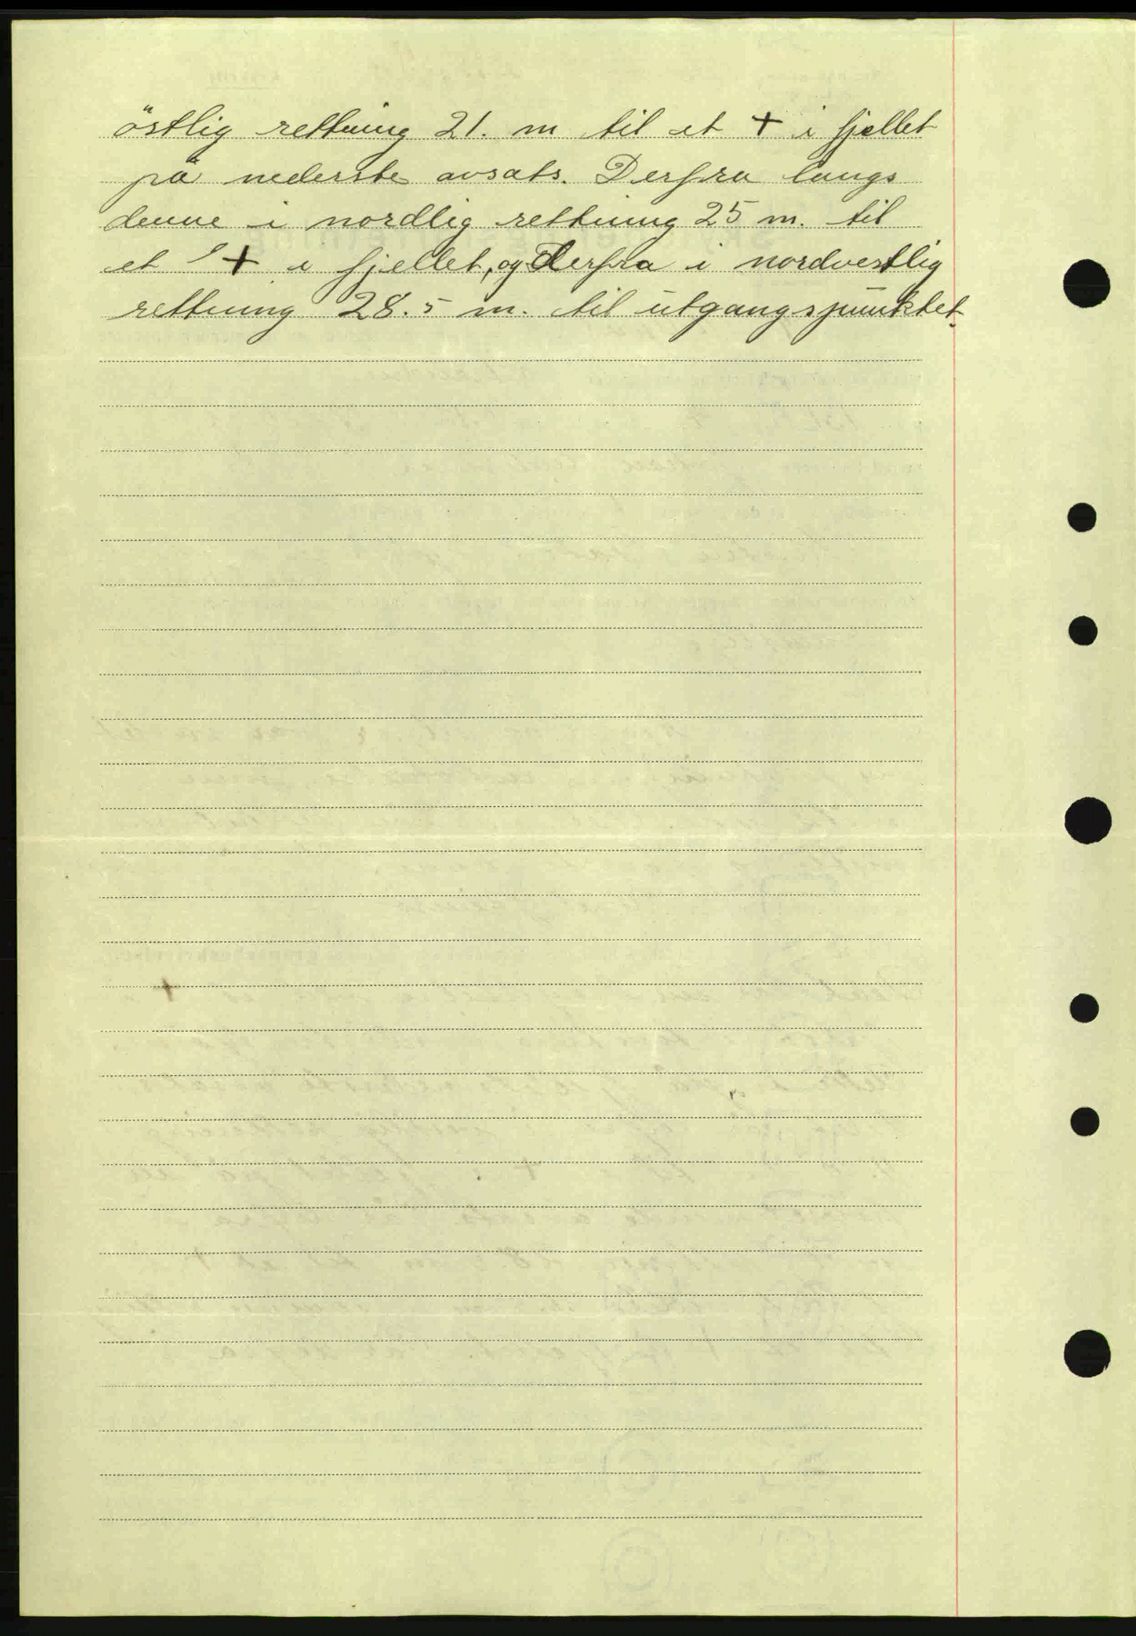 östlig rettning 21. m til et + i fjellet
på nederste avsats. Derfra langs
denne i nordlig rettning 25 m. til
et + i fjellet, og derfra i nordvestlig
rettning 28.5 m. til utgangspunktet.